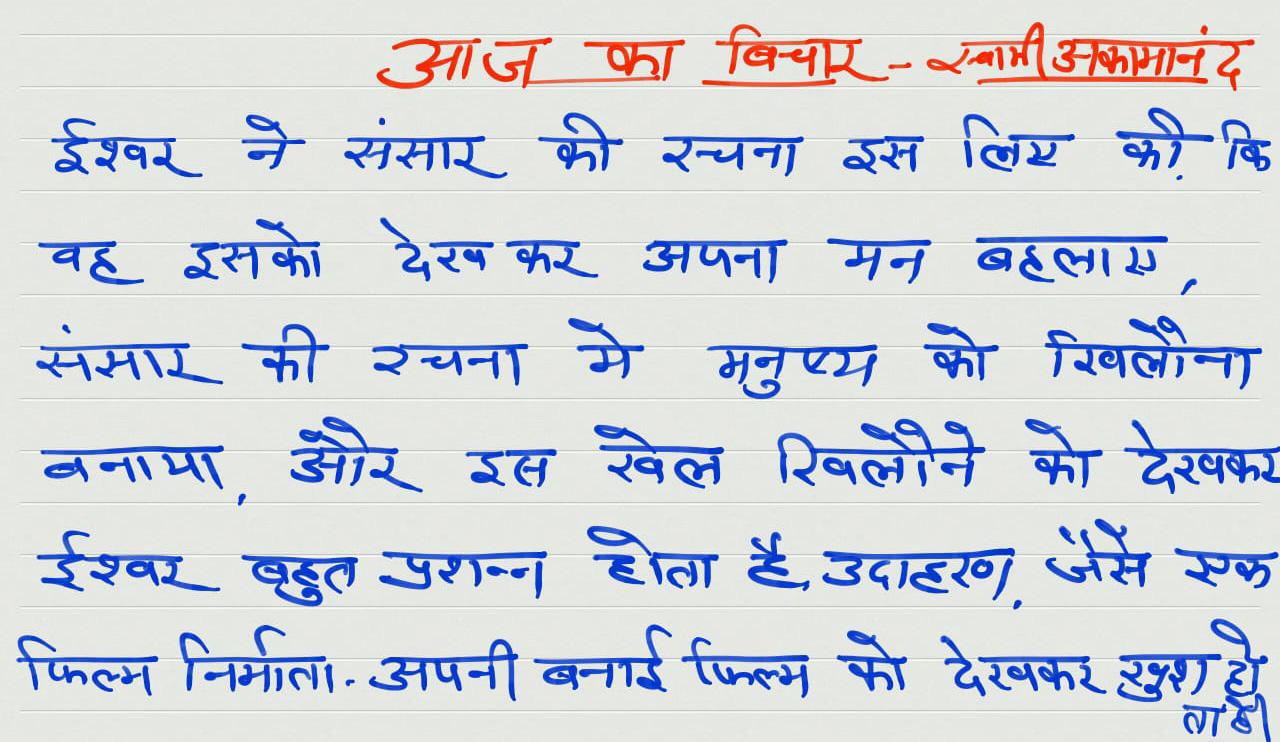 आज का विचार - स्वामी अकामानंद
ईश्वर ने संसार की रचना इस लिए की, कि
वह इसको देख कर अपना मन बहलाए,
संसार की रचना मे मनुष्य को खिलौना
बनाया, और इस खेल खिलौने को देखकर
ईश्वर बहुत प्रशन्न होता है, उदाहरण, जैसे एक
फिल्म निर्माता. अपनी बनाई फिल्म को देखकर खुश हो
ता है।